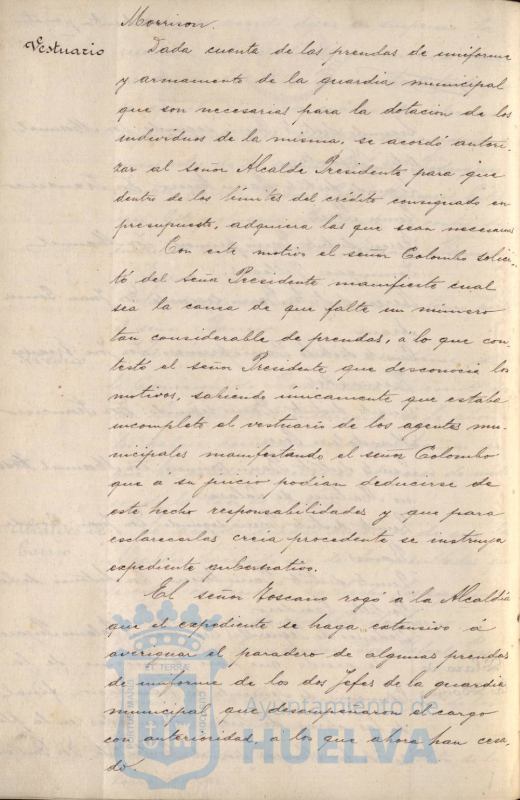 Morrison.
Vestuario
Dada cuenta de las prendas de uniforme
y armamento de la guardia municipal
que son necesarias para la dotacion de los
individuos de la misma, se acordó autori-
zar al señor Alcalde Presidente para que
dentro de los límites del crédito consignado en
presupuesto, adquiera las que sean necesarias
Con este motivo el señor Colombo solici-
tó del señor Presidente manifieste cual
sea la causa de que falte un número
tan considerable de prendas, á lo que con-
testó el señor Presidente que desconocia los
motivos, sabiendo únicamente que estaba
incompleto el vestuario de los agentes mu-
nicipales manifestando el señor Colombo
que á su juicio podian deducirse de
este hecho responsabilidades y que para
esclarecerlas creia procedente se instruya
expediente gubernativo.
El señor Toscano rogó á la Alcaldía
que el expediente se haga extensivo á
averiguar el paradero de algunas prendas
de uniforme de los dos Jefes de la guardia
municipal que desempeñaron el cargo
con anterioridad, á los que ahora han cesa-
do.
Ayuntamiento de
HUELVA